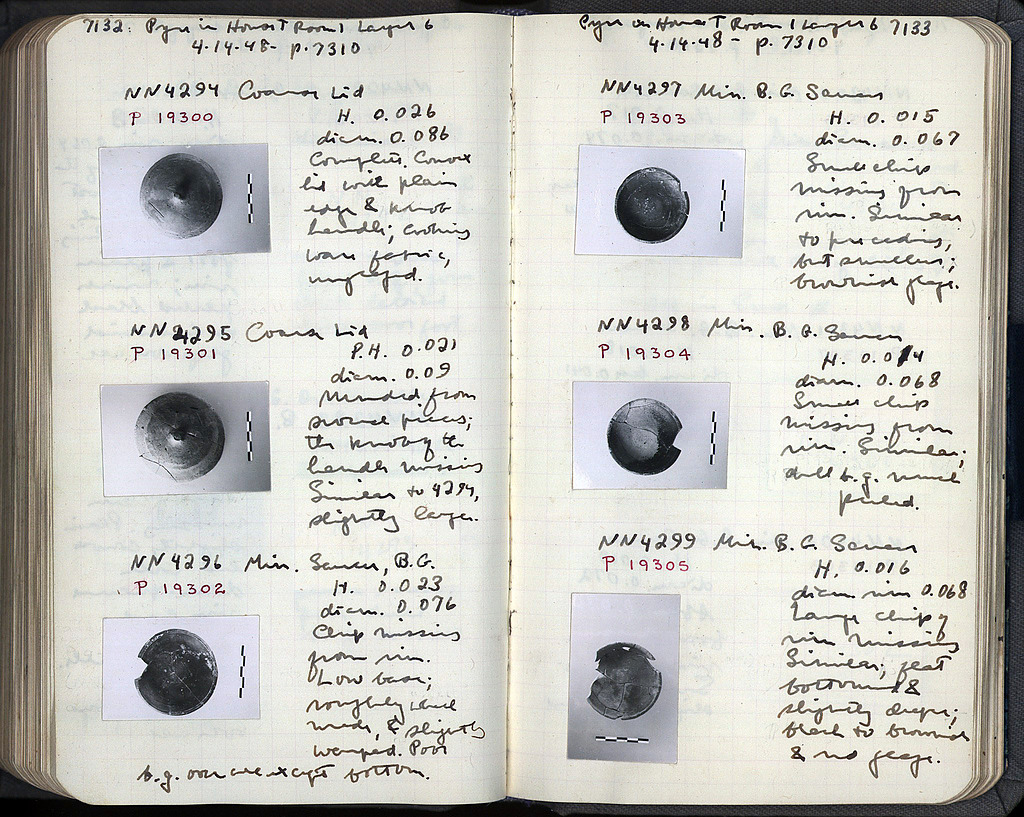 7132: Pyre in House T Room 1 Layer 6
4·14·48 - p. 7310
NN4294 Coarse Lid
P 19300
H. 0.026
diam. 0.086
Complete. Convex
lid with plain
edge & knob
handle; cooking
ware fabric,
unglazed.
NN4295 Coarse Lid
P 19301
P.H. 0.021
diam. 0.09
Mended from
several pieces;
the knob of the
handle missing
Similar to 4294,
slightly larger.
NN4296 Min. Saucer, B.G.
P 19302
H. 0.023
diam. 0.076
Chip missing
from rim.
Low base;
roughly
made, & slightly
warped. Poor
b.g. over all except bottom.
Pyre in House T Room 1 Layer 6 7133
4·14·48 - p. 7310
NN4297 Min. B.G. Saucer
P 19303
H. 0.015
diam. 0.067
Small chip
missing from
rim. Similar
to preceding,
but smaller;
brownish glaze.
NN4298 Min. B.G. Saucer
P 19304
H. 0.014
diam. 0.068
Small chip
missing from
rim. Similar;
dull b.g. much
peeled.
NN4299 Min. B.G. Saucer
P 19305
H. 0.016
diam. rim 0.068
Large chip of
rim missing
Similar; flat
bottomed &
slightly deeper;
black to brownish
& no glaze.